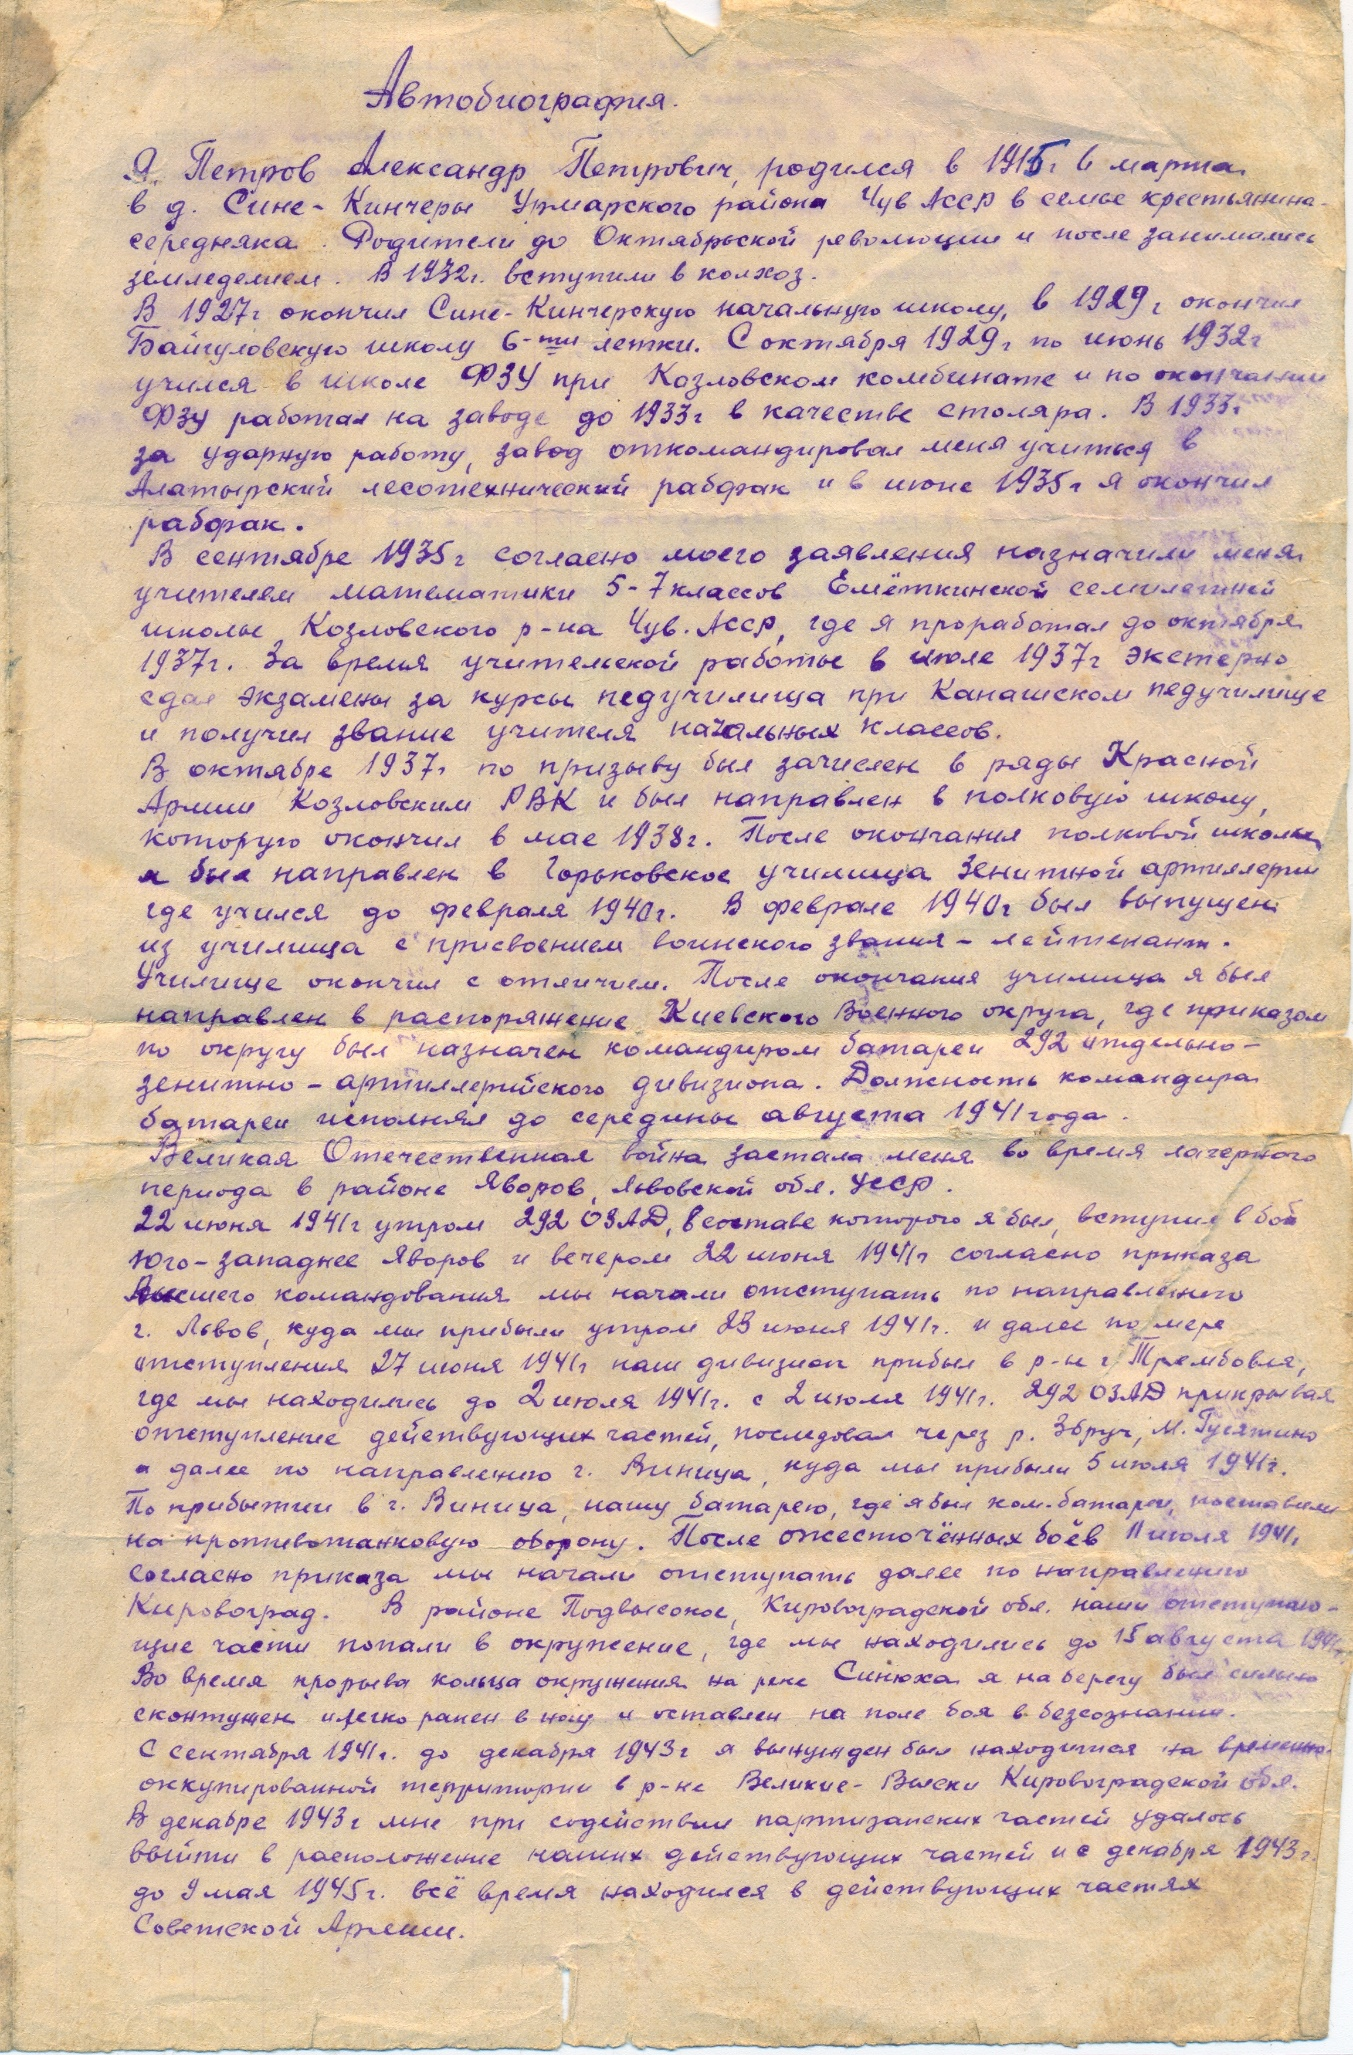 Автобиография.
Я, Петров Александр Петрович, родился в 1915г 6 марта
в д. Сине-Кинчеры Урмарского района Чув АССР в семье крестьянина-
середняка. Родители до Октябрьской революции и после занимались
земледелием. В 1932г. вступили в колхоз.
В 1927г окончил Сине-Кинчерскую начальную школу, в 1929г окончил
Байгуловскую школу 6-ти летки. С октября 1929г по июнь 1932г
учился в школе ФЗУ при Козловском комбинате и по окончании
ФЗУ работал на заводе до 1933г в качестве столяра. В 1933г
за ударную работу, завод откомандировал меня учиться в
Алатырский лесотехнический рабфак и в июне 1935г я окончил
рабфак.
В сентябре 1935г согласно моего заявления назначили меня
учителем математики 5-7 классов Емёткинской семилетней
школы Козловского р-на Чув. АССР, где я проработал до октября
1937г. За время учительской работы в июле 1937г экстерно
сдал экзамены за курсы педучилища при Канашском педучилище
и получил звание учителя начальных классов.
В октябре 1937г по призыву был зачислен в ряды Красной
Армии Козловским РВК и был направлен в полковую школу,
которую окончил в мае 1938г. После окончания полковой школы
я был направлен в Горьковское училища Зенитной артиллерии
где учился до февраля 1940г. В феврале 1940г был выпущен
из училища с присвоением воинского звания - лейтенант.
Училище окончил с отличием. После окончания училища я был
направлен в распоряжение Киевского Военного округа, где приказом
по округу был назначен командиром батареи 292 отдельно-
зенитно-артиллерийского дивизиона. Должность командира
батареи исполнял до середины августа 1941 года.
Великая Отечественная война застала меня во время лагерного
периода в районе Яворов, Львовской обл. УССР.
22 июня 1941г утром 292 ОЗАД, в составе которого я был, вступил в бой
Юго-западнее Яворов и вечером 22 июня 1941г согласно приказа
Высшего командования мы начали отступать по направлению
г. Львов, куда мы прибыли утром 23 июня 1941г. и далее по мере
отступления 27 июня 1941г наш дивизион прибыл в р-н г. Трембовля,
где мы находились до 2 июля 1941г. с 2 июля 1941г. 292 ОЗАД прикрывая
отступление действующих частей, последовал через р. Збруч, М. Гусятино
и далее по направлению г. Виница, куда мы прибыли 5 июля 1941г.
По прибытии в г. Виница, нашу батарею, где я был ком.батареи, поставили
на противотанковую оборону. После ожесточённых боёв 11 июля 1941г
согласно приказа мы начали отступать далее по направлению
Кировоград. В районе Подвысокое, Кировоградской обл. наши отступаю-
щие части попали в окружение, где мы находились до 15 августа 1941г.
Во время прорыва кольца окружения на реке Синюха я на берегу был сильно
сконтужен и легко ранен в ногу и оставлен на поле боя в безсознании.
С сентября 1941г. до декабря 1943г я вынужден был находится на временно-
оккупированной территории в р-не Великие-Выски Кировоградской обл.
В декабре 1943г мне при содействии партизанских частей удалось
выйти в расположение наших действующих частей и с декабря 1943г.
до 9 мая 1945г. всё время находился в действующих частях
Советской Армии.